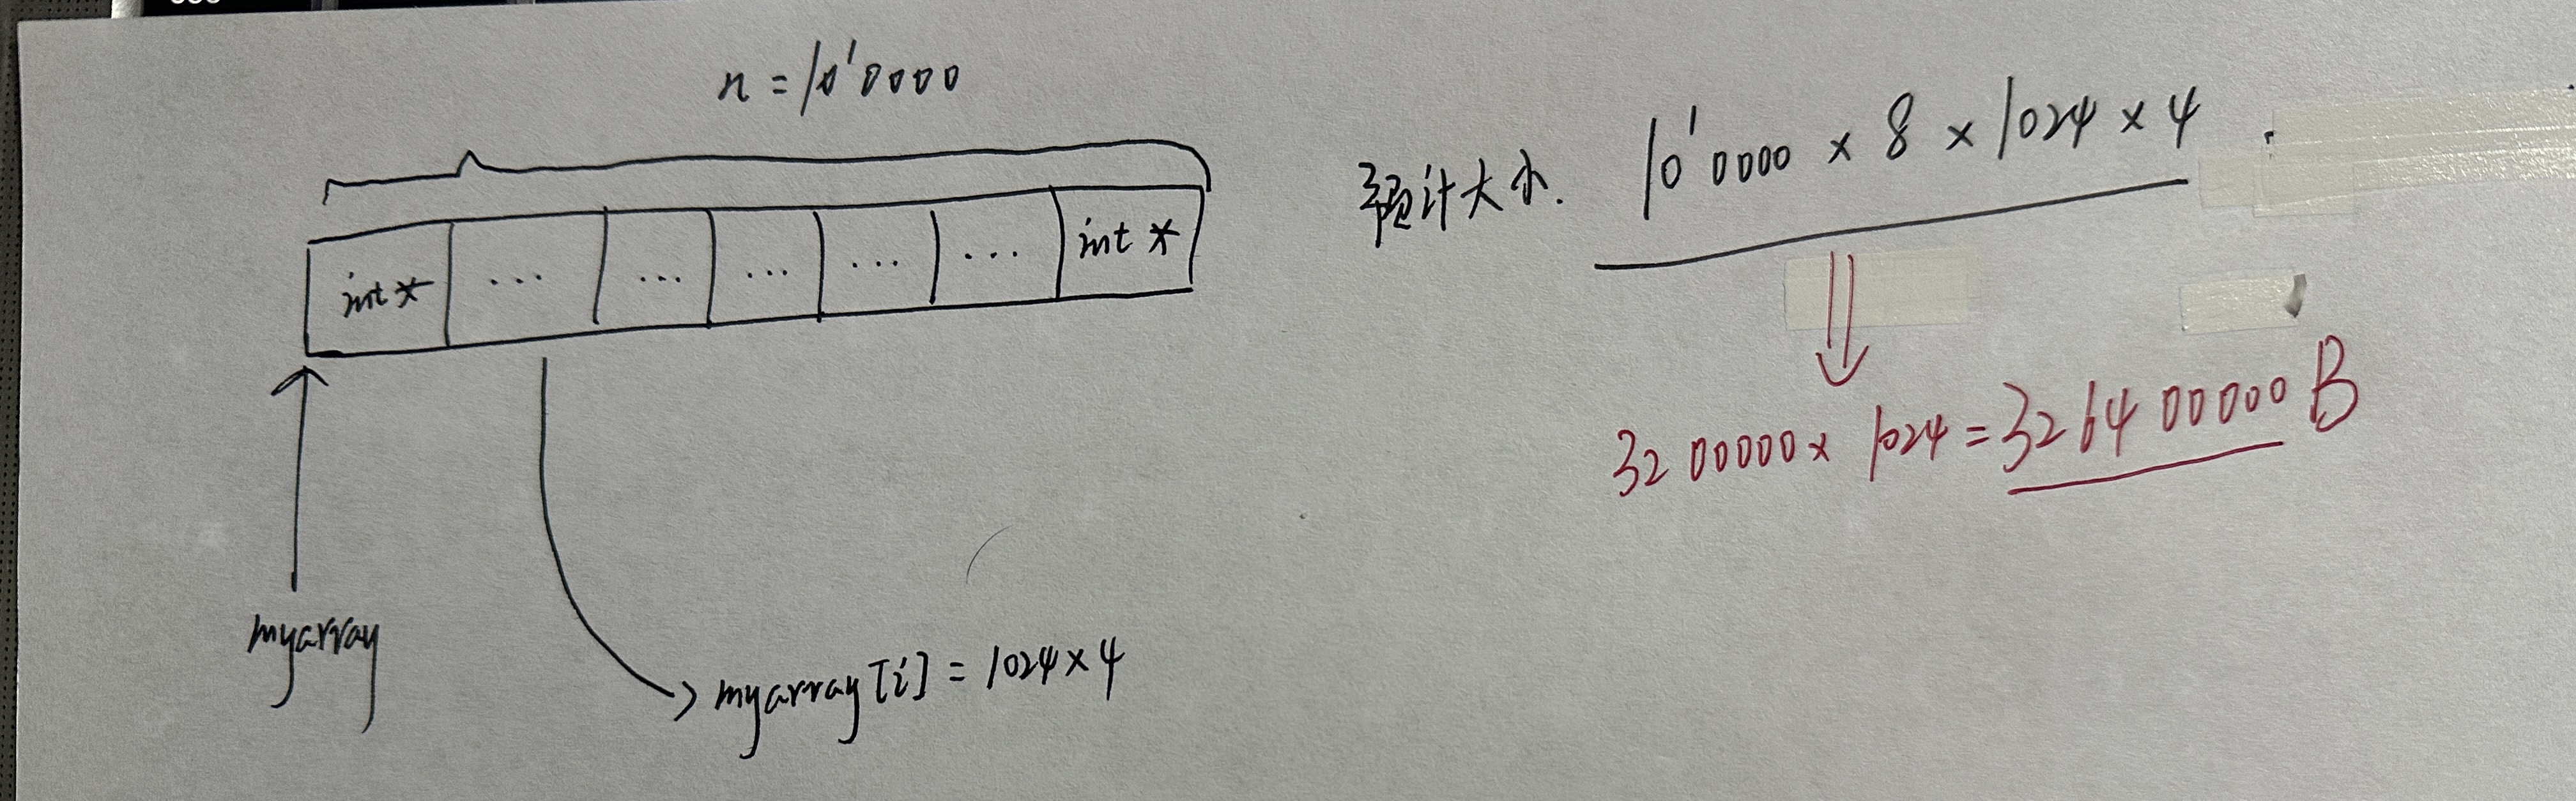 n = 10'0000
int * ... ... ... ... ... int *
myarray
myarray [i] = 1024 × 4
预计大小. 10'0000 × 8 × 1024 × 4 .
3200000 × 1024 = 326400000 B